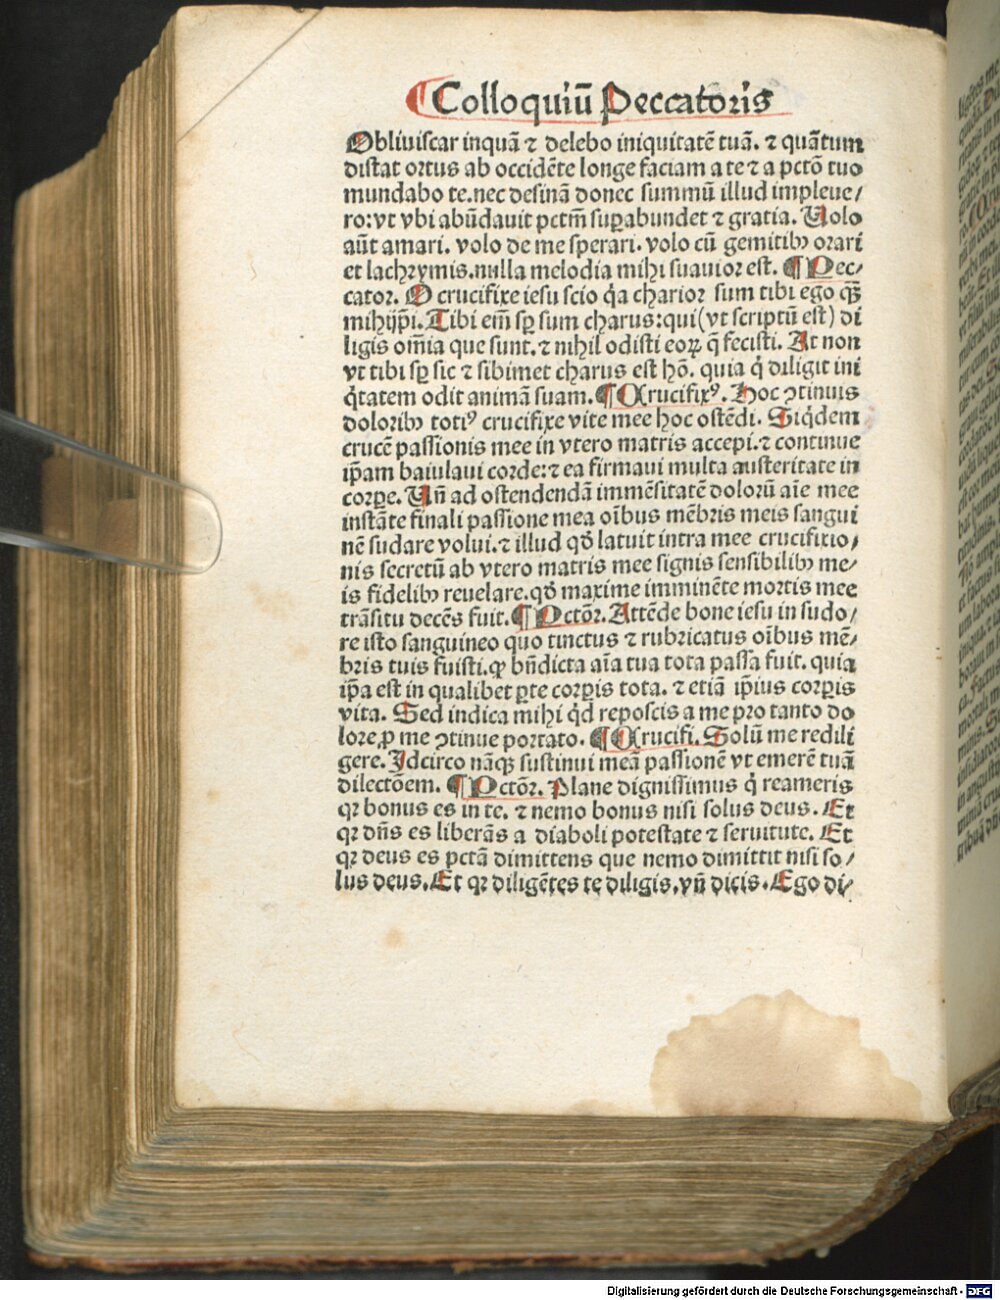 ¶Colloquiū Peccatoris
Obliuiscar inquā ⁊ delebo iniquitatē tuā. ⁊ quātum
distat ortus ab occidēte longe faciam a te ⁊ a pctō tuo
mundabo te. nec desinā donec summū illud impleue/
ro: vt vbi abūdauit pctm̄ suꝑabundet ⁊ gratia. Uolo
aūt amari. volo de me sperari. volo cū gemitibꝫ orari
et lachrymis. nulla melodia mihi suauior est. ¶ Pec/
cator. O crucifixe iesu scio q̇a charior sum tibi ego qꝫ̄
mihijp̄i. Tibi em̄ sꝑ sum charus: qui (vt scriptū est) di
ligis om̄ia que sunt. ⁊ nihil odisti eoꝝ q̄ fecisti. At non
vt tibi sꝑ sic ⁊ sibimet charus est hō. quia q̇ diligit ini
q̇tatem odit animā suam. ¶ Crucifixꝰ. Hoc ꝯtinuis
doloribꝫ totiꝰ crucifixe vite mee hoc ostēdi. Siq̇dem
crucē passionis mee in vtero matris accepi. ⁊ continue
ip̄am baiulaui corde: ⁊ ea firmaui multa austeritate in
corꝑe. Un̄ ad ostendendā immēsitatē dolorū aīe mee
instāte finali passione mea oībus mēbris meis sangui
nē sudare volui. ⁊ illud qḋ latuit intra mee crucifixio/
nis secretū ab vtero matris mee signis sensibilibꝫ me/
is fidelibꝫ reuelare. qḋ maxime imminēte mortis mee
trāsitu decēs fuit. ¶ Pctōr. Attēde bone iesu in sudo/
re isto sanguineo quo tinctus ⁊ rubricatus oībus mē/
bris tuis fuisti. ꝙ bn̄dicta aīa tua tota passa fuit. quia
ip̄a est in qualibet ꝑte corꝑis tota. ⁊ etiā ip̄ius corꝑis
vita. Sed indica mihi q̇d reposcis a me pro tanto do
lore, ꝓ me ꝯtinue portato. ¶ Crucifi. Solū me redili
gere. Idcirco nāqꝫ sustinui meā passionē vt emerē tuā
dilectōem. ¶ Pctōr. Plane dignissimus q̇ reameris
qꝛ bonus es in te. ⁊ nemo bonus nisi solus deus. Et
qꝛ dn̄s es liberās a diaboli potestate ⁊ seruitute. Et
qꝛ deus es pctā dimittens que nemo dimittit nisi so/
lus deus. Et qꝛ diligētes te diligis. vn̄ dicis. Ego di/
Digitalisierung gefördert durch die Deutsche Forschungsgemeinschaft - DFG